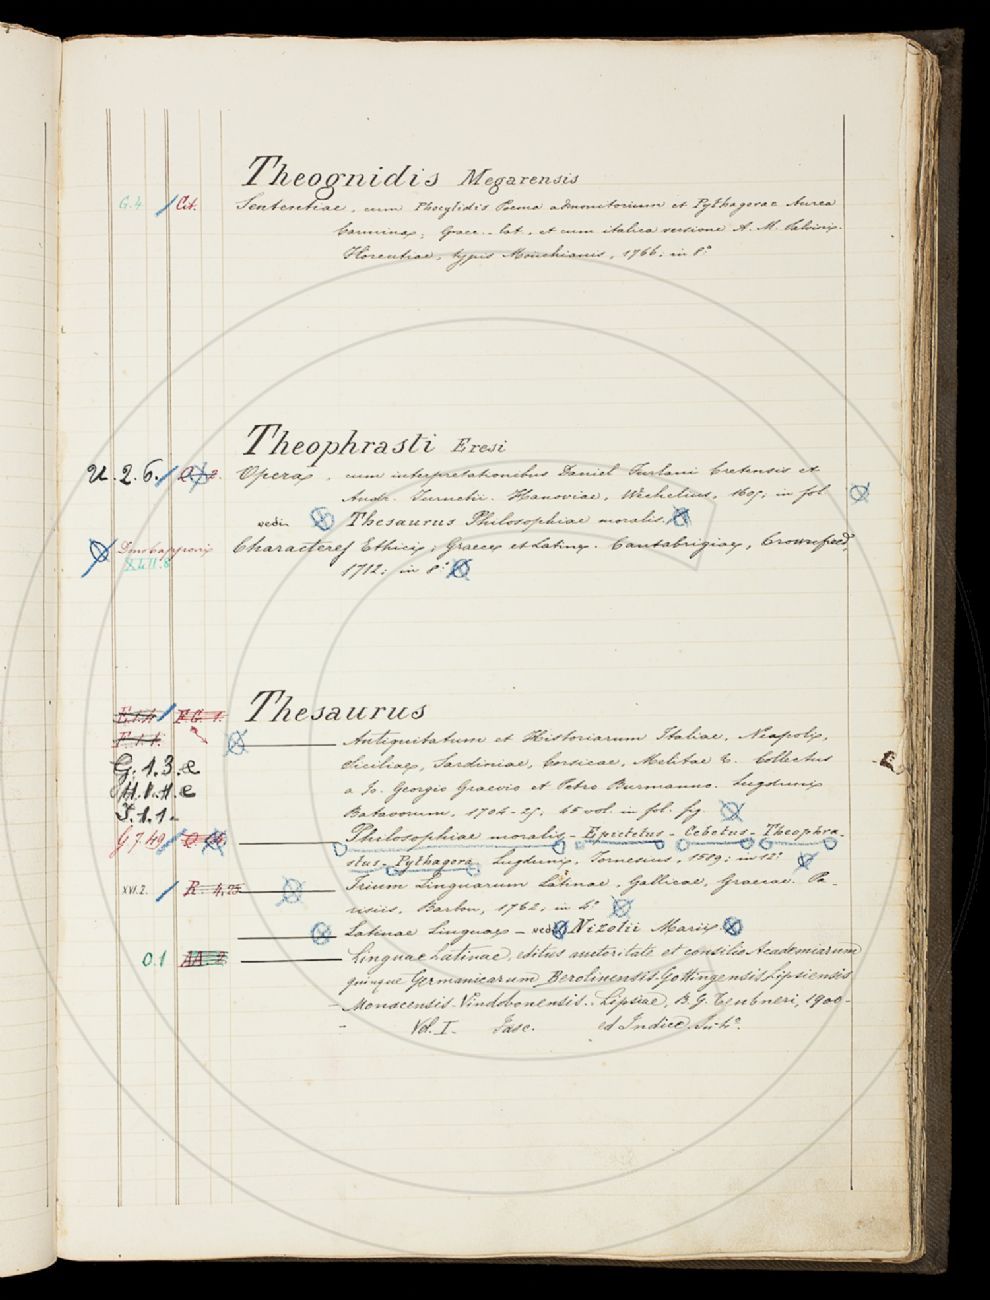 Theognidis Megarensis
G.4 Cit. Sententiae, cum Phocylidis Poema admonitorium et Pythagorae Aurea
Carmina; Graec. lat. et cum italica versione A. M. Salvini.
Florentiae, typis Mouchianis, 1766; in 8°
Theophrasti Eresi
U. 2. 6. Opera, cum interpretationibus Daniel Furlani Cretensis et
Andr. Turnebi. Hanoviae, Wechelius, 1605; in fol
vedi Thesaurus Philosophiae moralis.
Characteres Ethici; Graece et Latine. Cantabrigiae, Crownfied,
XLII.
1712; in 8°
Thesaurus
E.1.4 F.G. 1.
F.1.1.
Antiquitatum et Historiarum Italiae, Neapolis,
G. 1. 3. e Siciliae, Sardiniae, Corsicae, Melitae &. Collectus
H.1.1. e a Jo. Georgio Graevio et Petro Burmanno. Lugduni
I. 1. 1. Batavorum, 1704-25, 45 vol. in fol. fig
Philosophiae moralis - Epictetus - Cebetus - Theophra-
stus - Pythagora. Lugduni, Tornesius, 1589; in 12°
XVI.2. R. 4. 25 Trium Linguarum Latinae, Gallicae, Graecae. Pa-
risiis, Barbou, 1762, in 4°
Latinae Linguae - vedi Nizolii Marii
O.1 AA. 2 Linguae Latinae, editus auctoritate et consilio Academiarum
quinque Germanicarum Berolinensis Gottingensis Lipsiensis
Monacensis Vindobonensis. Lipsiae, B. G. Teubneri, 1900-
Vol. I. Fasc. ed Indice